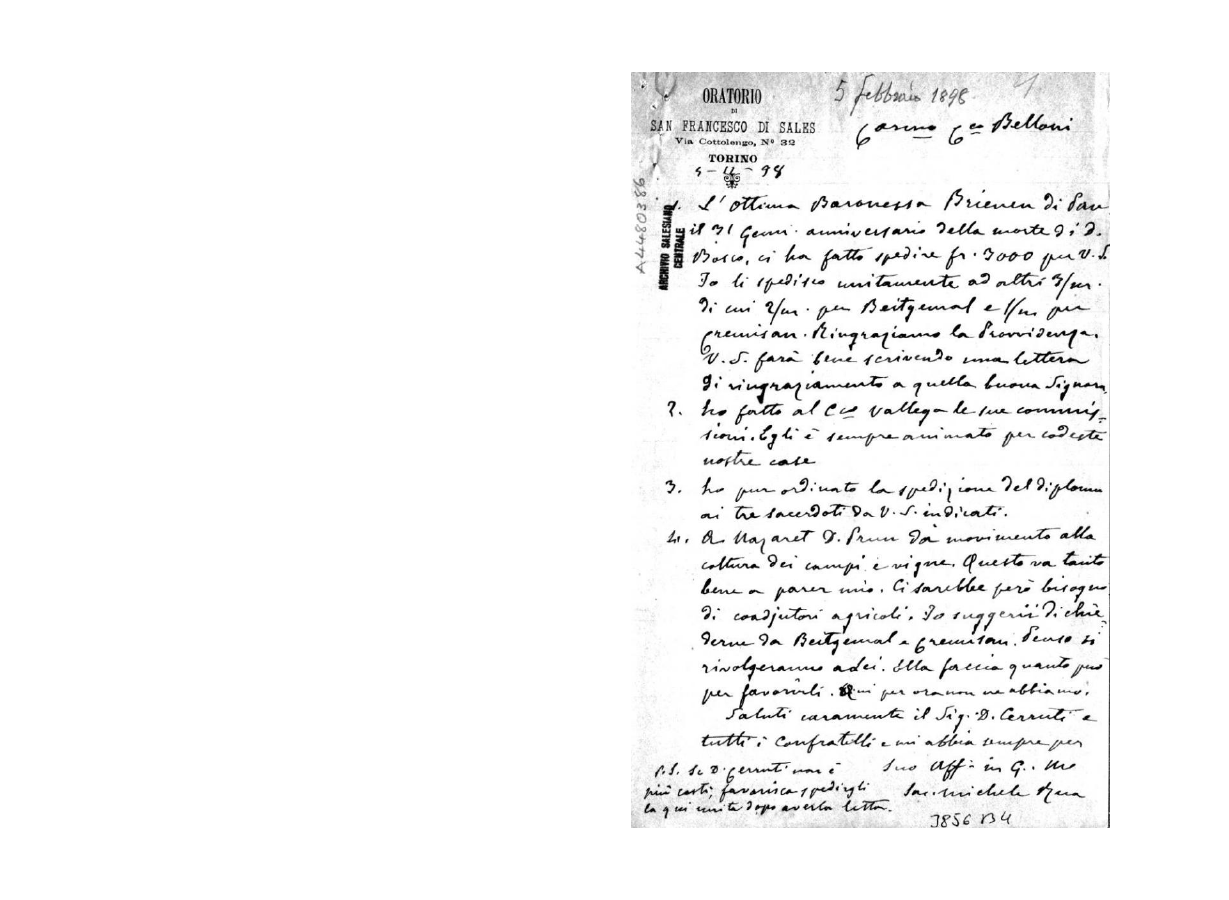 5 febbraio 1898
ORATORIO
DI
SAN FRANCESCO DI SALES
Via Cottolengo, Nº 32
TORINO
5-II-98
Carmo Cco Belloni
A4480386
ARCHIVIO SALESIANO
CENTRALE
1. L'ottima Baronessa Brienen di
il 31 Genn. anniversario della morte di d.
Bosco, ci ha fatto spedire fr. 3000 per V. S.
Io li spedisco unitamente ad altri 3/m.
di cui 2/m. per Beitgemal e 1/m per
Cremisan. Ringraziamo la Provvidenza.
V. S. farà bene scrivendo una lettera
di ringraziamento a quella buona Signora
2. ho fatto al Cco Vallega le sue commis-
sioni. Egli è sempre animato per codeste
nostre case
3. ho pur ordinato la spedizione del diploma
ai tre sacerdoti da V. S. indicati.
4. A Nazaret D. Prun dà movimento alla
coltura dei campi e vigne. Questo va tanto
bene a parer mio. Ci sarebbe però bisogno
di coadjutori agricoli. Io suggerii di chie-
derne da Beitgemal e Cremisan. Penso si
rivolgeranno a Lei. Ella faccia quanto può
per favorirli. Qui per ora non ne abbiamo.
Saluti caramente il Sig. D. Cerruti e
tutti i Confratelli e mi abbia sempre per
Suo Aff. in G. M
Sac. Michele Rua
P.S. Se D. Cerruti non è
più costì, favorisca spedirgli
la qui unita dopo averla letta.
3856 B4